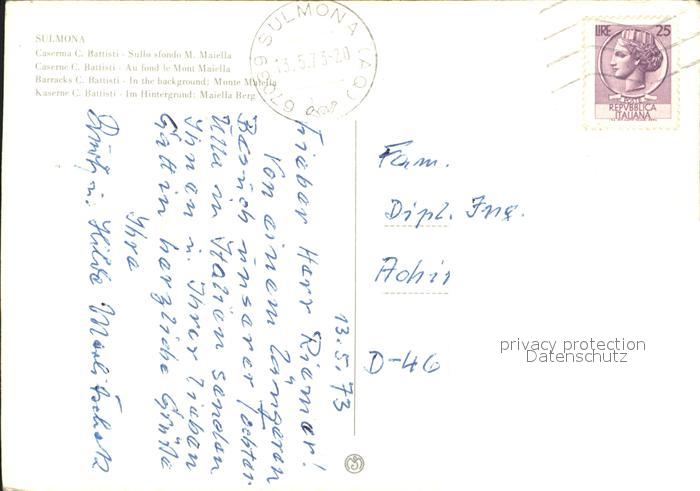 SULMONA
Caserma C. Battisti - Sullo sfondo M. Maiella
Caserne C. Battisti - Au fond le Mont Maiella
Barracks C. Battisti - In the background: Monte Maiella
Kaserne C. Battisti - Im Hintergrund: Maiella Berg
67039 SULMONA (AQ)
13.5.73-20
LIRE 25
POSTE
REPVBBLICA
ITALIANA
13.5.73
Lieber Herr Riemer!
Von einem längeren
Besuch unserer Tochter
Ulla in Italien senden
Ihnen u. Ihrer lieben
Gattin herzliche Grüße
Ihre
u. Hilde
Fam.
Dipl. Ing.
Achim
D-46
privacy protection
Datenschutz